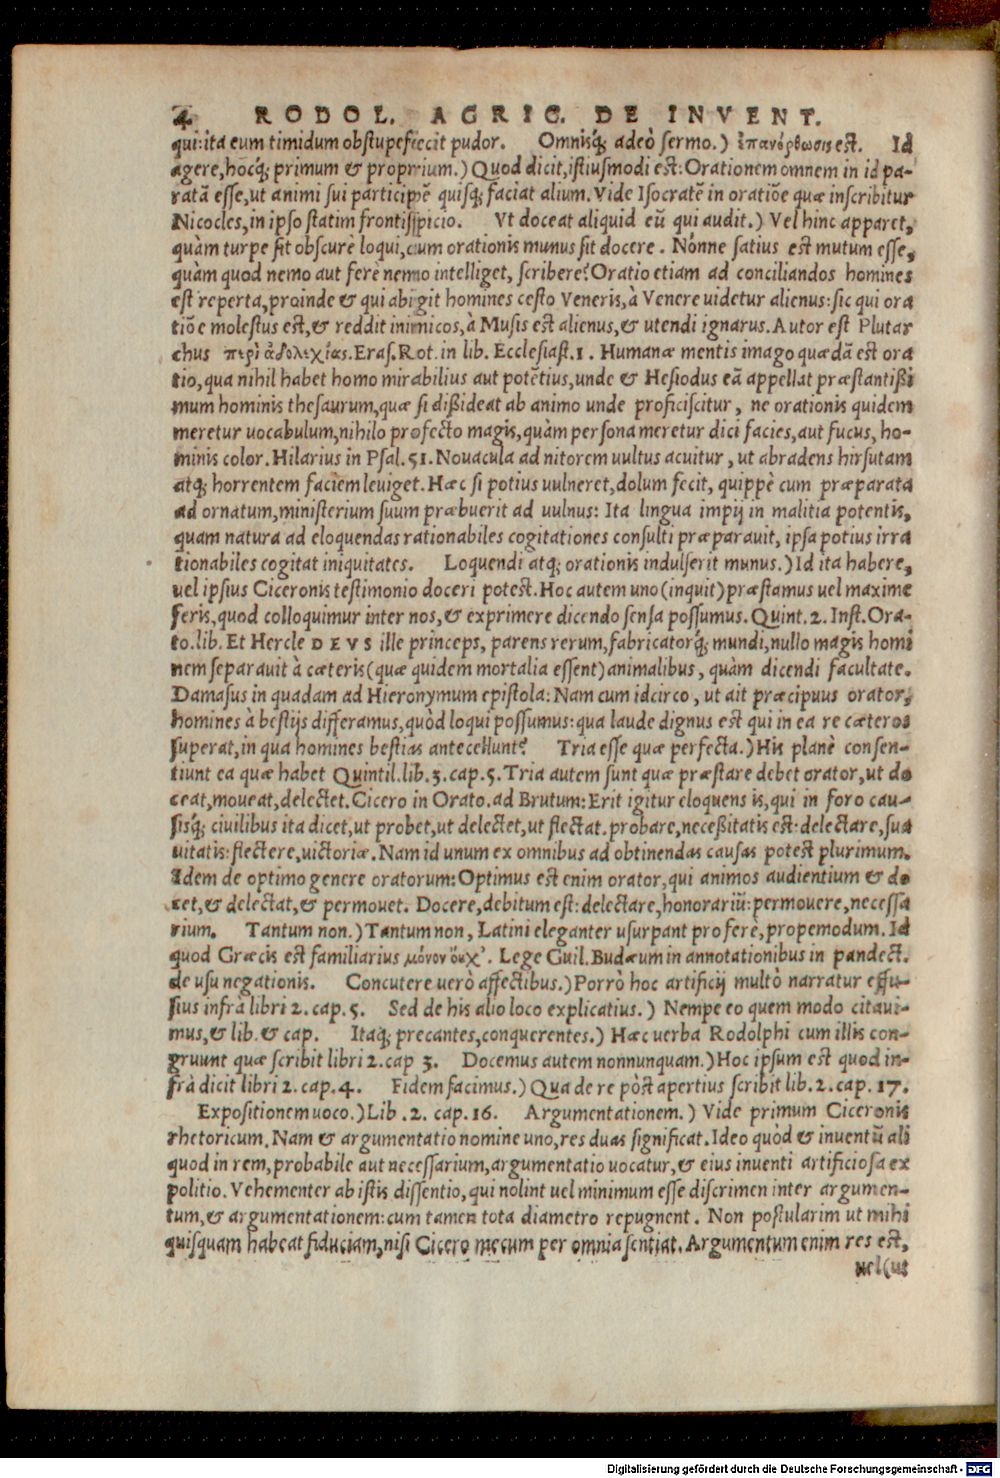 4 RODOL. AGRIC. DE INVENT.
qui: ita eum timidum obstupefecit pudor. Omnisq́; adeò sermo.) ἐπανόρθωσις est. Id
agere, hocq́; primum & proprium.) Quod dicit, istiusmodi est: Orationem omnem in id pa-
ratā esse, ut animi sui participē quisq; faciat alium. Vide Isocratē in oratiōe quæ inscribitur
Nicocles, in ipso statim frontispicio. Vt doceat aliquid eū qui audit.) Vel hinc apparet,
quàm turpe sit obscurè loqui, cum orationis munus sit docere. Nónne satius est mutum esse,
quàm quod nemo aut ferè nemo intelliget, scribere? Oratio etiam ad conciliandos homines
est reperta, proinde & qui abigit homines cesto Veneris, à Venere uidetur alienus: sic qui ora
tiōe molestus est, & reddit inimicos, à Musis est alienus, & utendi ignarus. Autor est Plutar
chus περὶ ἀδολεχίας. Eras. Rot. in lib. Ecclesiast. 1. Humanæ mentis imago quædā est ora
tio, qua nihil habet homo mirabilius aut potētius, unde & Hesiodus eā appellat præstantißi
mum hominis thesaurum, quæ si dißideat ab animo unde proficiscitur, ne orationis quidem
meretur uocabulum, nihilo profecto magis, quàm persona meretur dici facies, aut fucus, ho-
minis color. Hilarius in Psal. 51. Nouacula ad nitorem uultus acuitur, ut abradens hirsutam
atq; horrentem faciem leuiget. Hæc si potius uulneret, dolum fecit, quippè cum præparata
ad ornatum, ministerium suum præbuerit ad uulnus: Ita lingua impij in malitia potentis,
quam natura ad eloquendas rationabiles cogitationes consulti præparauit, ipsa potius irra
tionabiles cogitat iniquitates. Loquendi atq; orationis indulserit munus.) Id ita habere,
uel ipsius Ciceronis testimonio doceri potest. Hoc autem uno (inquit) præstamus uel maxime
feris, quod colloquimur inter nos, & exprimere dicendo sensa possumus. Quint. 2. Inst. Ora-
to. lib. Et Hercle DEVS ille princeps, parens rerum, fabricatorq́; mundi, nullo magis homi
nem separauit à cæteris (quæ quidem mortalia essent) animalibus, quàm dicendi facultate.
Damasus in quadam ad Hieronymum epistola: Nam cum idcirco, ut ait præcipuus orator,
homines à bestijs differamus, quòd loqui possumus: qua laude dignus est qui in ea re cæteros
superat, in qua homines bestias antecellunt? Tria esse quæ perfecta.) His planè consen-
tiunt ea quæ habet Quintil. lib. 3. cap. 5. Tria autem sunt quæ præstare debet orator, ut do
ceat, moueat, delectet. Cicero in Orato. ad Brutum: Erit igitur eloquens is, qui in foro cau-
sisq́; ciuilibus ita dicet, ut probet, ut delectet, ut flectat. probare, neceßitatis est: delectare, sua
uitatis: flectere, uictoriæ. Nam id unum ex omnibus ad obtinendas causas potest plurimum.
Idem de optimo genere oratorum: Optimus est enim orator, qui animos audientium & do
cet, & delectat, & permouet. Docere, debitum est: delectare, honorariū: permouere, necessa
rium. Tantum non.) Tantum non, Latini eleganter usurpant pro ferè, propemodum. Id
quod Græcis est familiarius μόνον ὄυχ'. Lege Guil. Budæum in annotationibus in pandect.
de usu negationis. Concutere uerò affectibus.) Porrò hoc artificij multò narratur effu-
sius infrà libri 2. cap. 5. Sed de his alio loco explicatius.) Nempe eo quem modo citaui-
mus, & lib. & cap. Itaq; precantes, conquerentes.) Hæc uerba Rodolphi cum illis con-
gruunt quæ scribit libri 2. cap 3. Docemus autem nonnunquam.) Hoc ipsum est quod in-
frà dicit libri 2. cap. 4. Fidem facimus.) Qua de re pòst apertius scribit lib. 2. cap. 17.
Expositionem uoco.) Lib. 2. cap. 16. Argumentationem.) Vide primum Ciceronis
rhetoricum. Nam & argumentatio nomine uno, res duas significat. Ideo quòd & inuentū ali
quod in rem, probabile aut necessarium, argumentatio uocatur, & eius inuenti artificiosa ex
politio. Vehementer ab istis dissentio, qui nolint uel minimum esse discrimen inter argumen-
tum, & argumentationem: cum tamen tota diametro repugnent. Non postularim ut mihi
quisquam habeat fiduciam, nisi Cicero mecum per omnia sentiat. Argumentum enim res est,
uel (ut
Digitalisierung gefördert durch die Deutsche Forschungsgemeinschaft - DFG